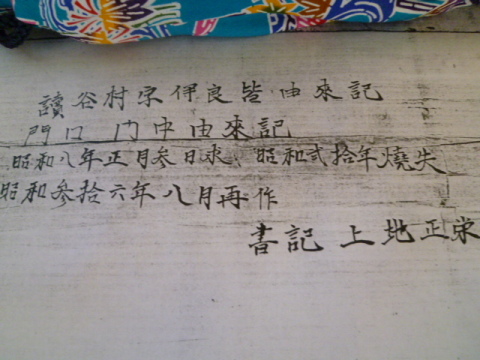 讀谷村字伊良皆由來記
門口門中由來記
昭和八年正月参日求、昭和弐拾年燒失
昭和参拾六年八月再作
書記 上地正栄